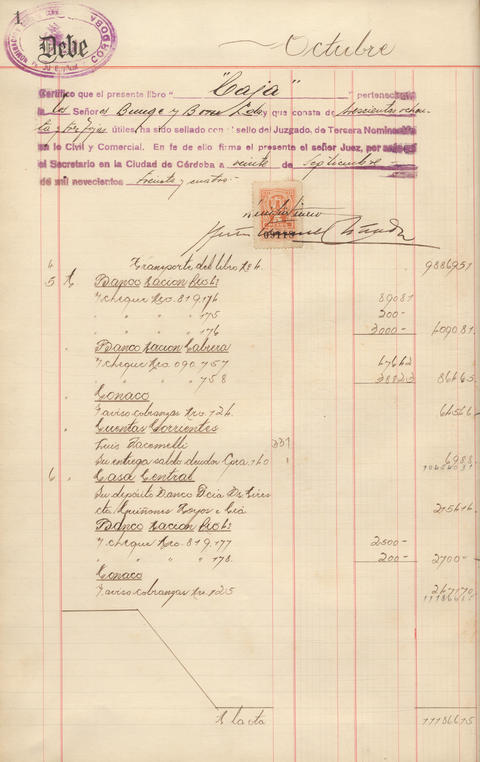 1
Debe
CORDOBA
Octubre
Certifico que el presente libro "Caja" pertenece
a los Señores Bunge y Born Ltda, y que consta de trescientos ochen-
ta y tres fojas útiles, ha sido sellado con el sello del Juzgado, de Tercera Nominación
en lo Civil y Comercial. En fe de ello firma el presente el señor Juez, por ante
el Secretario en la Ciudad de Córdoba a veinte de Septiembre
de mil novecientos treinta y cuatro.-
4 Transporte del libro No 4. 9886951
5 Banco Nacion
T/cheque Nro. 819.174 89081
" " " 175 200-
" " " 176 3000- 409081
" Banco Nacion Cabrera
T/cheque Nro 090.757 47642
" " " 758 38823 86465
" Conaco
T/aviso cobranzas Nro. 124. 64566
" Cuentas Corrientes
Luis Giacomelli 221
Su entrega saldo deudor Cpra. 140 6988
10454051
6 " Casa Central
Su depósito Banco Pcia Bs. Aires
cta Quiñones Hoyos e Cia 215414
Banco Nacion
T/cheque Nro. 819.177 2500-
" " " " 178. 200- 2700-
Conaco
T/aviso cobranzas Nro. 125 247170
11186615
A la vta 11186615